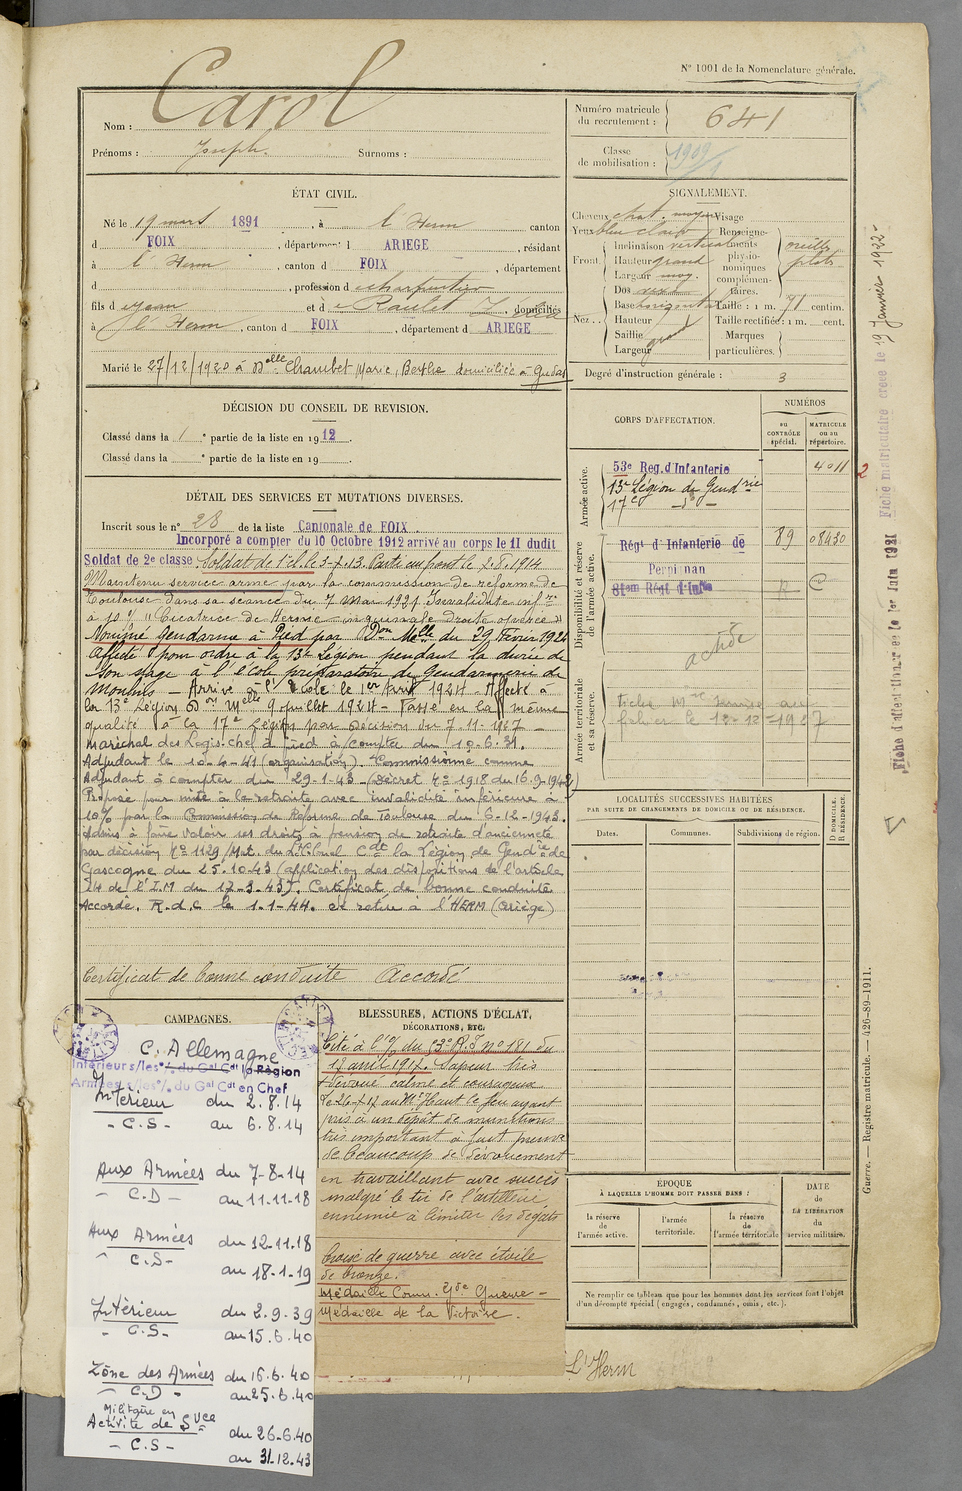 N° 1001 de la Nomenclature générale.
Carol
Nom :
Prénoms : Joseph. Surnoms :
Numéro matricule du recrutement : 641
Classe de mobilisation : 1909/1
ÉTAT CIVIL.
Né le 19 mars 1891, à l'Herm canton
d FOIX, département d ARIEGE, résidant
à l'Herm, canton d FOIX, département
d , profession d charpentier
fils d e Jean et d e Raulet domiciliés
à l'Herm, canton d FOIX, département d ARIEGE
Marié le 27/12/1920 à Delle Chambet Marie, Berthe domiciliée à Gudas
SIGNALEMENT.
Cheveux chat. moyen Visage
Yeux bleu clair
Front. Inclinaison vertical
Hauteur grand
Largeur moy.
Nez. Dos rect.
Base horizontal
Hauteur
Saillie
Largeur grand
Renseignements physionomiques complémentaires. oreilles
Taille : 1 m. 71 centim.
Taille rectifiée : 1 m. cent.
Marques particulières.
Degré d'instruction générale : 3
DÉCISION DU CONSEIL DE REVISION.
Classé dans la 1 e partie de la liste en 1912.
Classé dans la e partie de la liste en 19 .
DÉTAIL DES SERVICES ET MUTATIONS DIVERSES.
Inscrit sous le n° 28 de la liste Cantonale de FOIX.
Incorporé a compter du 10 Octobre 1912 arrivé au corps le 11 dudit
Soldat de 2e classe Soldat de 1e cl. le 3-X-13. Parti au front le 7.8.1914
Maintenu service armé par la commission de réforme de
Toulouse dans sa séance du 7 mai 1921 Invalidité infre
à 10% "Cicatrice de hernie inguinale droite opérée"
Nommé gendarme à Pied par Don Mlle du 29 Février 1924
Affecté pour ordre à la 13e Légion pendant la durée de
son stage à l'école préparatoire de Gendarmerie de
Moulins – Arrivé à l'Ecole le 1er Avril 1924 – Affecté à
la 13e Légion Don Mlle 9 juillet 1924 – Passé en la même
qualité à la 17e Légion par décision du 7-11-1927 –
Maréchal des Logis-chef à pied à compter du 10-6-31.
Adjudant le 10-4-41 (organisation). Commissionné comme
Adjudant à compter du 29-1-43 (Décret N° 1918 du 16-9-1942)
Proposé pour mise à la retraite avec invalidité inférieure à
10% par la Commission de Réforme de Toulouse du 6-12-1943.
Admis à faire valoir ses droits à pension de retraite d'ancienneté
par décision N° 1129/Mat. du Lt Clonel Cdt la Légion de Gendie de
Gascogne du 25.10.43 (application des dispositions de l'article
24 de l'I.M du 17-3-43). Certificat de bonne conduite
Accordé. R.d.C le 1-1-44. se retire à l'HERM (Ariège)
Certificat de bonne conduite Accordé
CORPS D'AFFECTATION.
NUMÉROS
au CONTRÔLE spécial.
MATRICULE ou au répertoire.
Armée active.
53e Reg. d'Infanterie 4011
13e Légion de Gendrie
17e – d° –
2
Disponibilité et réserve de l'armée active.
Régt d'Infanterie de Perpignan 89 08430
81em Régt d'Infie
Armée territoriale et sa réserve.
LOCALITÉS SUCCESSIVES HABITÉES
PAR SUITE DE CHANGEMENTS DE DOMICILE OU DE RÉSIDENCE.
Dates. Communes. Subdivisions de région. D DOMICILE. R RÉSIDENCE.
CAMPAGNES.
C. Allemagne
Intérieur du 2.8.14
– C.S – au 6.8.14
Aux Armées du 7-8-14
– C.D – au 11-11-18
Aux Armées du 12-11-18
– C.S – au 18-1-19
Intérieur du 2.9.39
– C.S – au 15.6.40
Zône des Armées du 16.6.40
– C.D – au 25.6.40
Militaire en
Activité de Svce du 26-6.40
– C.S – au 31.12.43
BLESSURES, ACTIONS D'ÉCLAT,
DÉCORATIONS, ETC.
Cité à l'O/ du 53e R.I n° 181 du
17 avril 1917. Sapeur très
dévoué calme et courageux
le feu ayant
pris à un dépôt de munitions
très important à fait preuve
de beaucoup de dévouement
en travaillant avec succès
malgré le tir de l'artillerie
ennemie à limiter les dégâts
Croix de guerre avec étoile
de bronze.
Médaille Comm. Gde Guerre –
Médaille de la Victoire.
ÉPOQUE
À LAQUELLE L'HOMME DOIT PASSER DANS :
la réserve de l'armée active.
l'armée territoriale.
la réserve de l'armée territoriale
DATE de LA LIBÉRATION du service militaire.
Ne remplir ce tableau que pour les hommes dont les services font l'objet
d'un décompte spécial (engagés, condamnés, omis, etc.).
L'Herm
Guerre. — Registre matricule. — 426-89-1911.
Fiche matriculaire créée le 19 Janvier 1922